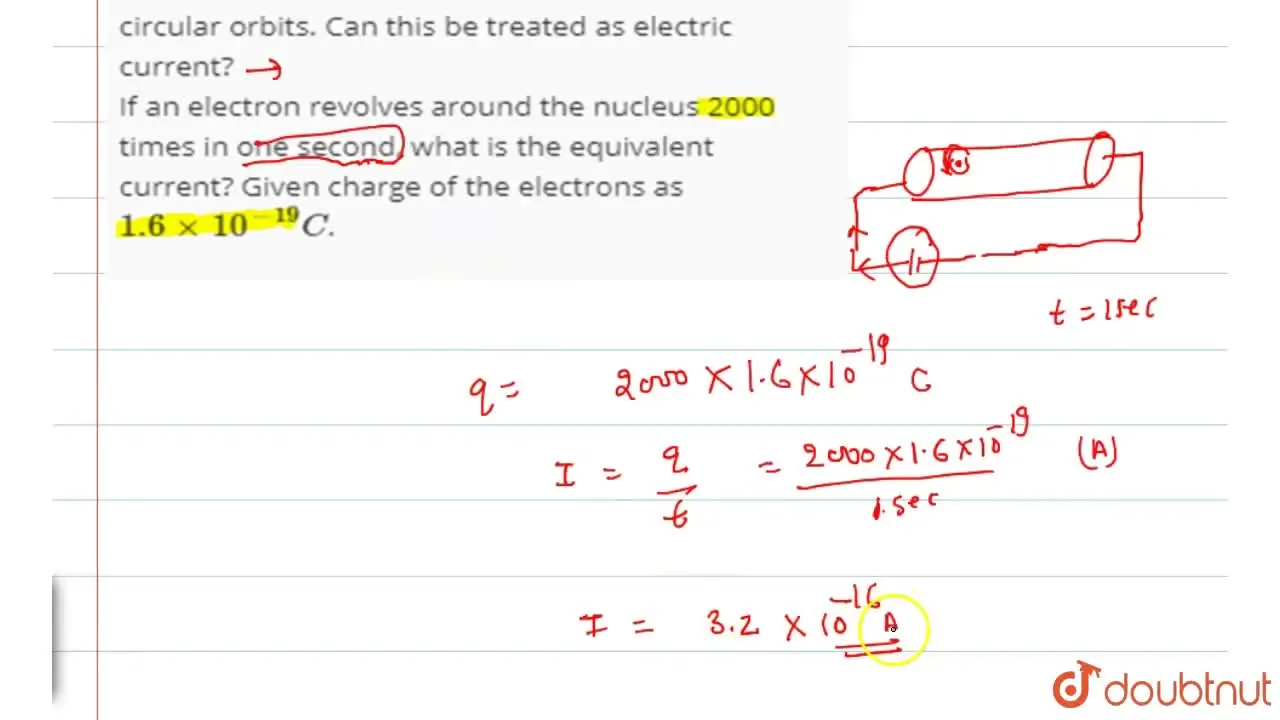 circular orbits. Can this be treated as electric
current? →
If an electron revolves around the nucleus 2000
times in one second, what is the equivalent
current? Given charge of the electrons as
1.6 × 10⁻¹⁹ C.
t = 1 sec
q = 2000 × 1.6 × 10⁻¹⁹ C
I = q/t = 2000 × 1.6 × 10⁻¹⁹ / 1. sec (A)
I = 3.2 × 10⁻¹⁶ A
doubtnut